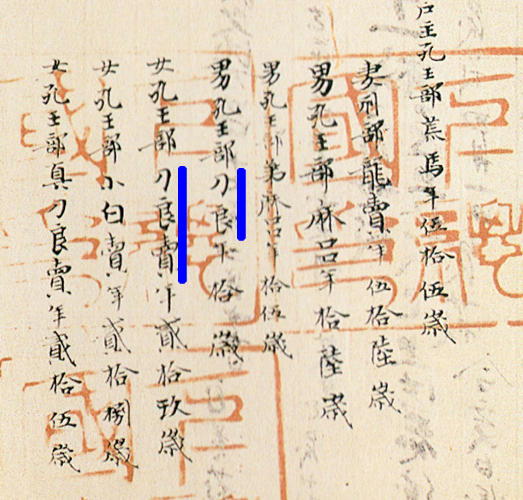 戸主孔王部荒馬年伍拾伍歳
妻刑部龍賣年伍拾陸歳
男孔王部麻呂年拾陸歳
男孔王部弟麻呂年拾伍歳
男孔王部刀良年拾歳
女孔王部刀良賣年貳拾玖歳
女孔王部小白賣年貳拾捌歳
女孔王部真刀良賣年貳拾伍歳